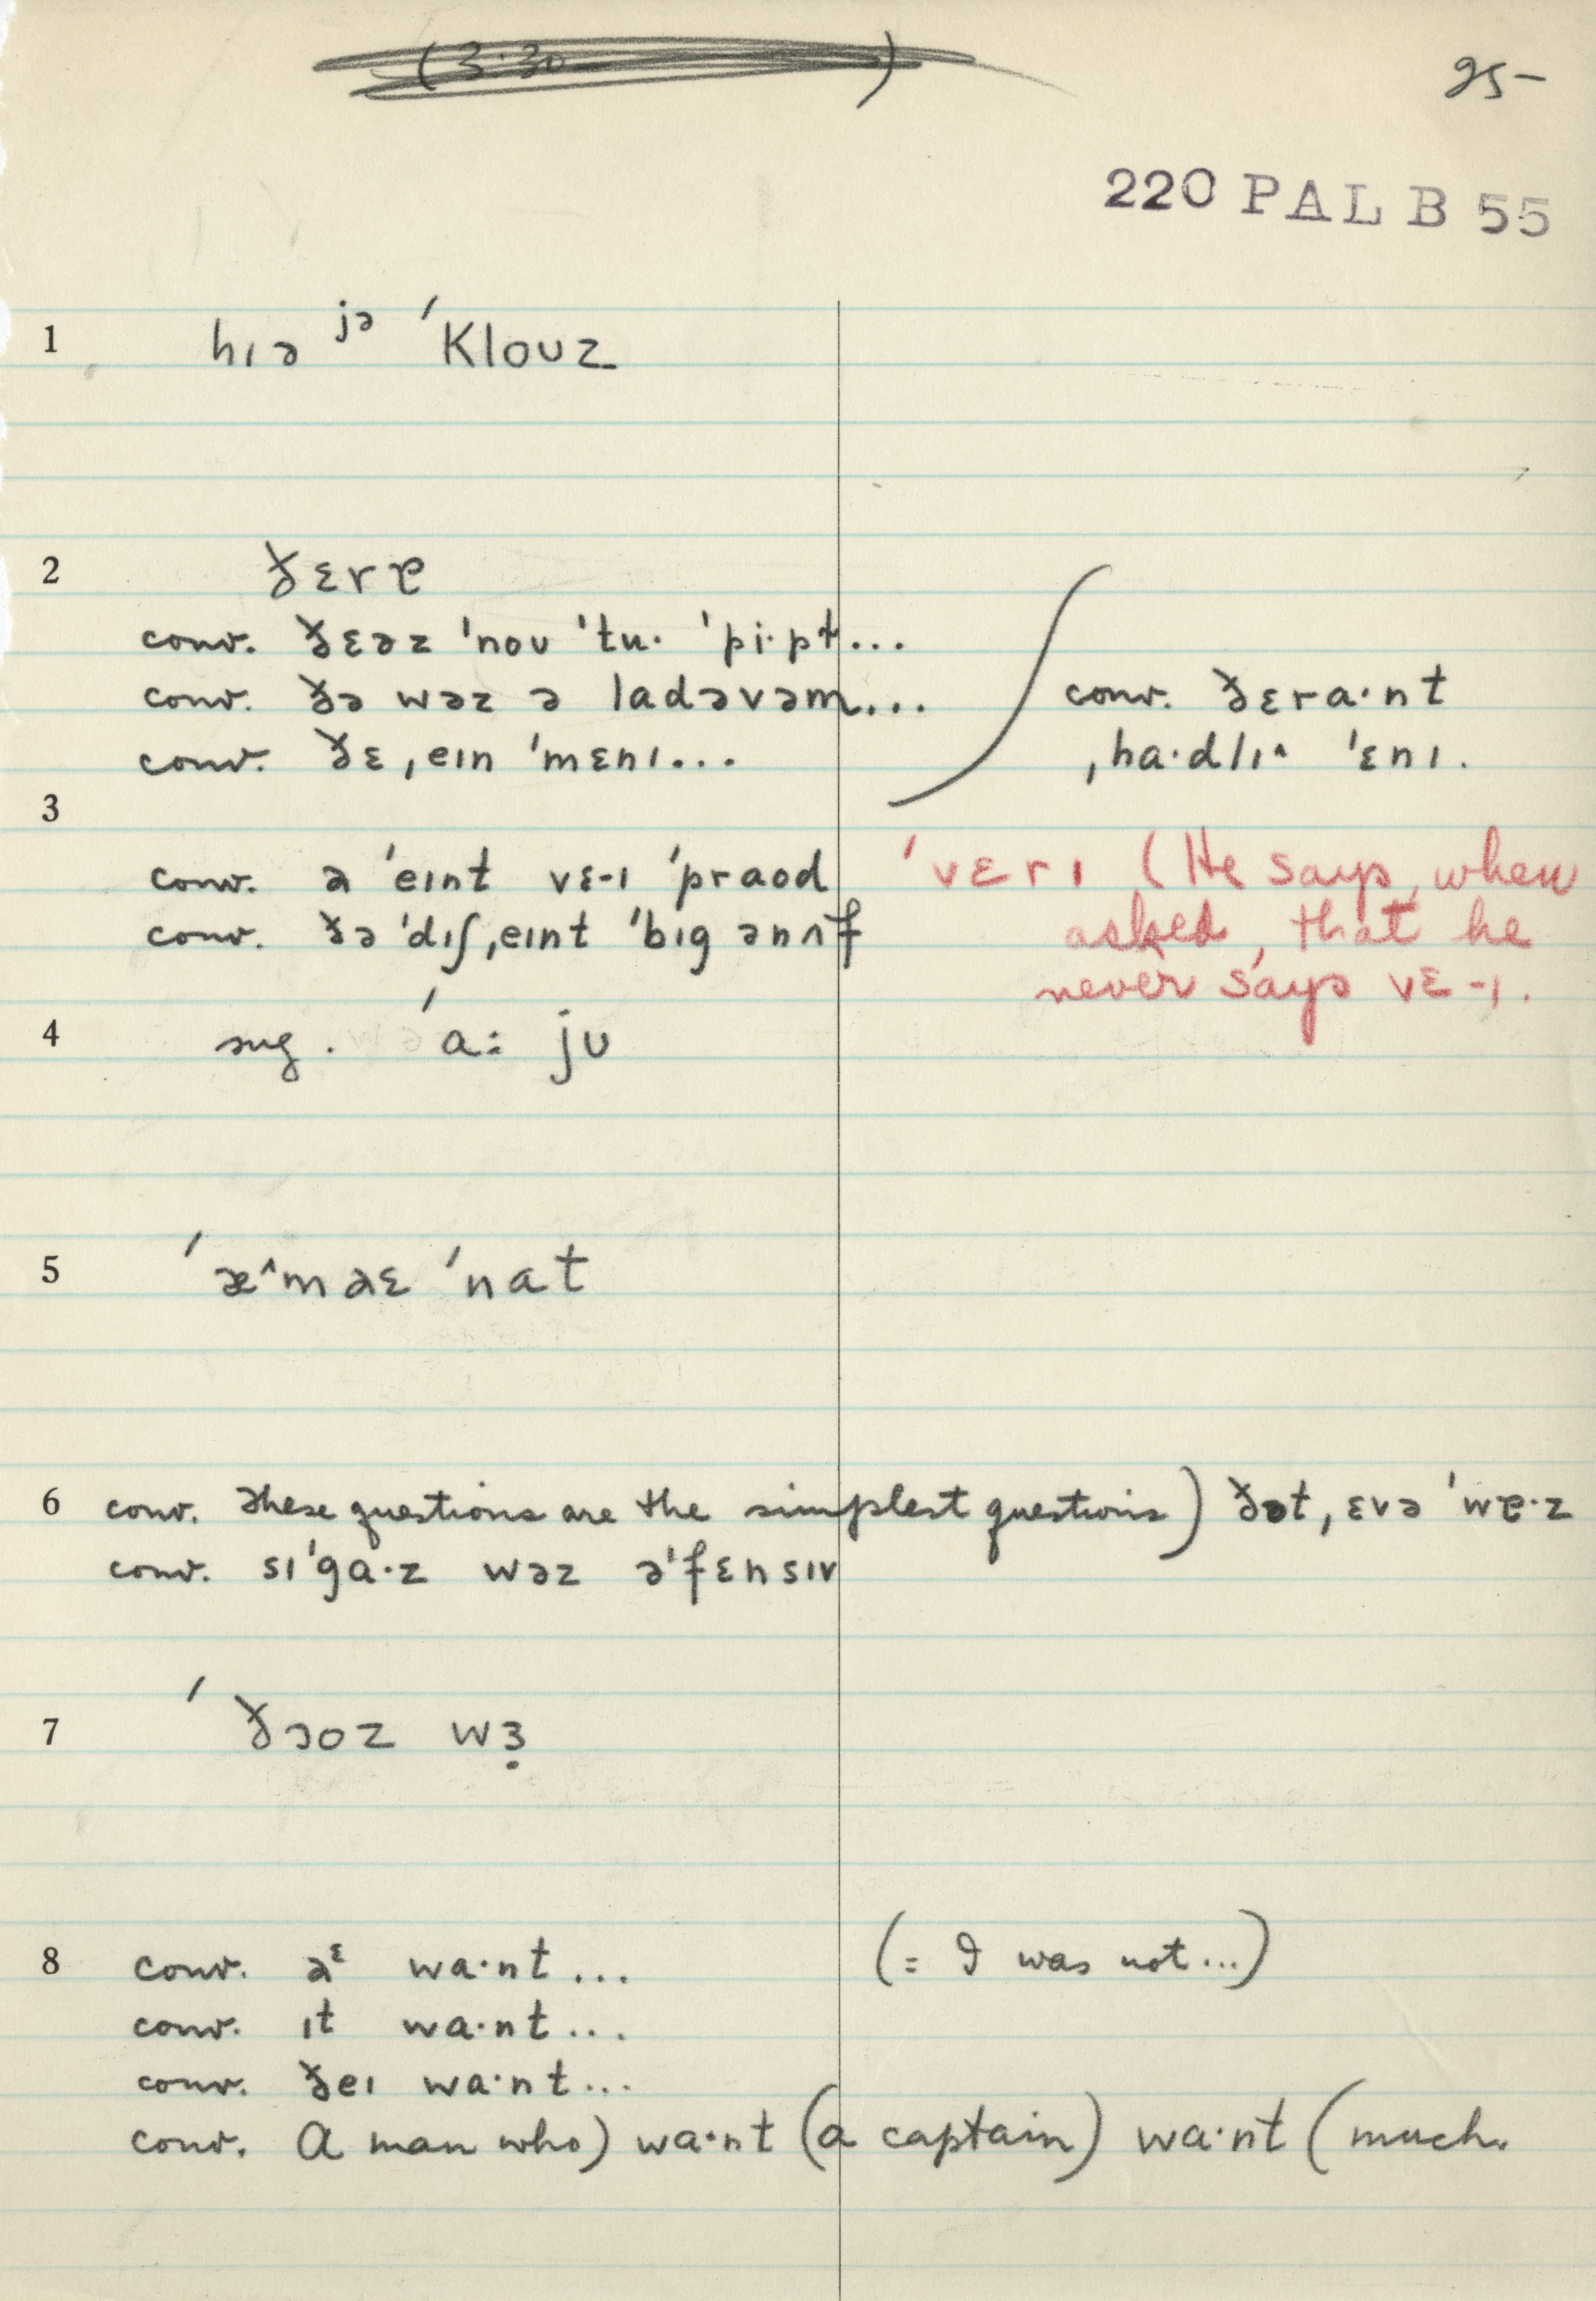 (3:30 )
25-
220 PAL B 55
1 hɪə jə ˈklouz
2 ðɛrɐ
conv. ðɛəz ˈnoʊ ˈtu· ˈpi·pt...
conv. ðə wəz ə ladəvəm...
conv. ðɛ ˌeɪn ˈmɛnɪ...
conv. ðɛra·nt
ˌha·dlɪ^ ˈɛnɪ.
3
conv. a ˈeɪnt vɛ-ɪ ˈpraod
conv. ðə ˈdɪʃˌeɪnt ˈbɪg ənʌf
ˈvɛrɪ (He says, when
asked, that he
never says vɛ-ɪ.
4 sug. ˈa: jʊ
5 ˈæ^m aɛ ˈnat
6 conv. These questions are the simplest questions) ðət ˌɛvə ˈwɐ·z
conv. sɪˈga·z wəz əˈfɛnsɪv
7 ˈðɔoz wɜ̣
8 conv. aᵋ wa·nt... (= I was not...)
conv. ɪt wa·nt...
conv. ðeɪ wa·nt...
conv. A man who) wa·nt (a captain) wa·nt (much.